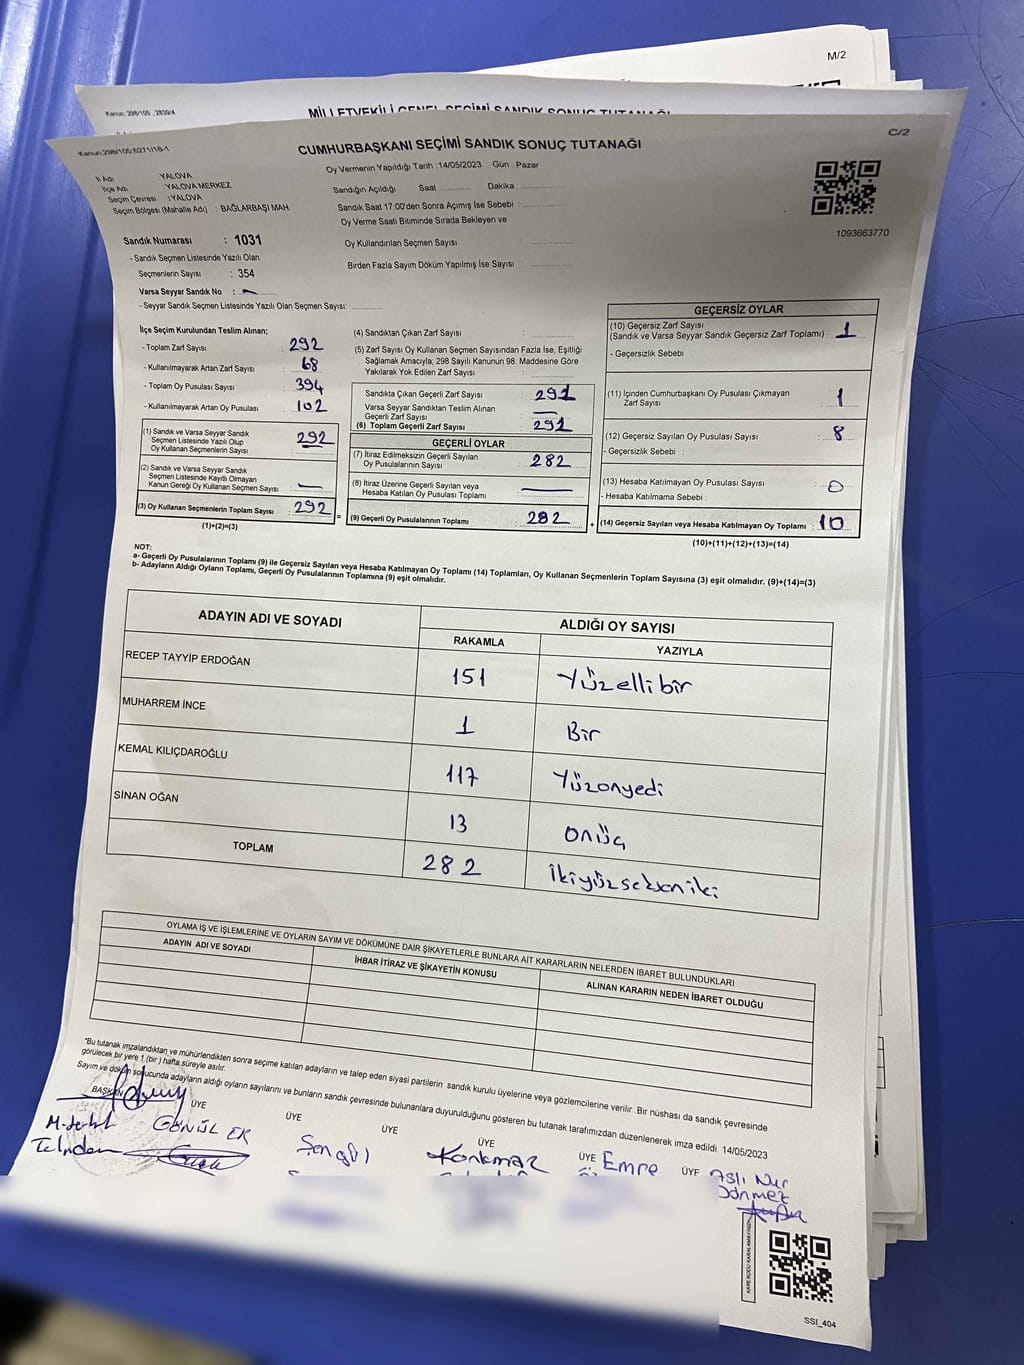 M/2
Kanun: 298/105 , 2839/4
MİLLETVEKİLİ GENEL SEÇİMİ SANDIK SONUÇ TUTANAĞI
C/2
Kanun:298/105;6271/18-1
CUMHURBAŞKANI SEÇİMİ SANDIK SONUÇ TUTANAĞI
Oy Vermenin Yapıldığı Tarih :14/05/2023 Gün : Pazar
İl Adı YALOVA
İlçe Adı : YALOVA MERKEZ
Seçim Çevresi :YALOVA
Seçim Bölgesi (Mahalle Adı) : BAĞLARBAŞI MAH.
Sandığın Açıldığı Saat Dakika :
Sandık Saat 17:00'den Sonra Açımış İse Sebebi :
Oy Verme Saati Bitiminde Sırada Bekleyen ve
Oy Kullandırılan Seçmen Sayısı :
Birden Fazla Sayım Döküm Yapılmış İse Sayısı :
1093663770
Sandık Numarası : 1031
- Sandık Seçmen Listesinde Yazılı Olan
Seçmenlerin Sayısı : 354
Varsa Seyyar Sandık No : –
- Seyyar Sandık Seçmen Listesinde Yazılı Olan Seçmen Sayısı:
İlçe Seçim Kurulundan Teslim Alınan;
- Toplam Zarf Sayısı : 292
- Kullanılmayarak Artan Zarf Sayısı : 68
- Toplam Oy Pusulası Sayısı : 394
- Kullanılmayarak Artan Oy Pusulası : 102
(1) Sandık ve Varsa Seyyar Sandık
Seçmen Listesinde Yazılı Olup
Oy Kullanan Seçmenlerin Sayısı : 292
(2) Sandık ve Varsa Seyyar Sandık
Seçmen Listesinde Kayıtlı Olmayan
Kanun Gereği Oy Kullanan Seçmen Sayısı : —
(3) Oy Kullanan Seçmenlerin Toplam Sayısı : 292
(1)+(2)=(3)
(4) Sandıktan Çıkan Zarf Sayısı :
(5) Zarf Sayısı Oy Kullanan Seçmen Sayısından Fazla İse, Eşitliği
Sağlamak Amacıyla; 298 Sayılı Kanunun 98. Maddesine Göre
Yakılarak Yok Edilen Zarf Sayısı :
Sandıkta Çıkan Geçerli Zarf Sayısı : 291
Varsa Seyyar Sandıktan Teslim Alınan
Geçerli Zarf Sayısı : —
(6) Toplam Geçerli Zarf Sayısı : 291
GEÇERLİ OYLAR
(7) İtiraz Edilmeksizin Geçerli Sayılan
Oy Pusulalarının Sayısı : 282
(8) İtiraz Üzerine Geçerli Sayılan veya
Hesaba Katılan Oy Pusulası Toplamı : —
= (9) Geçerli Oy Pusulalarının Toplamı : 282
GEÇERSİZ OYLAR
(10) Geçersiz Zarf Sayısı
(Sandık ve Varsa Seyyar Sandık Geçersiz Zarf Toplamı) : 1
- Geçersizlik Sebebi :
(11) İçinden Cumhurbaşkanı Oy Pusulası Çıkmayan
Zarf Sayısı : 1
(12) Geçersiz Sayılan Oy Pusulası Sayısı : 8
- Geçersizlik Sebebi :
(13) Hesaba Katılmayan Oy Pusulası Sayısı : 0
- Hesaba Katılmama Sebebi :
+ (14) Geçersiz Sayılan veya Hesaba Katılmayan Oy Toplamı : 10
(10)+(11)+(12)+(13)=(14)
NOT:
a- Geçerli Oy Pusulalarının Toplamı (9) ile Geçersiz Sayılan veya Hesaba Katılmayan Oy Toplamı (14) Toplamları, Oy Kullanan Seçmenlerin Toplam Sayısına (3) eşit olmalıdır. (9)+(14)=(3)
b- Adayların Aldığı Oyların Toplamı, Geçerli Oy Pusulalarının Toplamına (9) eşit olmalıdır.
ADAYIN ADI VE SOYADI ALDIĞI OY SAYISI
RAKAMLA YAZIYLA
RECEP TAYYİP ERDOĞAN 151 Yüzellibir
MUHARREM İNCE 1 Bir
KEMAL KILIÇDAROĞLU 117 Yüzonyedi
SİNAN OĞAN 13 Onüç
TOPLAM 282 İkiyüzsekseniki
OYLAMA İŞ VE İŞLEMLERİNE VE OYLARIN SAYIM VE DÖKÜMÜNE DAİR ŞİKAYETLERLE BUNLARA AİT KARARLARIN NELERDEN İBARET BULUNDUKLARI
ADAYIN ADI VE SOYADI İHBAR İTİRAZ VE ŞİKAYETİN KONUSU ALINAN KARARIN NEDEN İBARET OLDUĞU
"Bu tutanak imzalandıktan ve mühürlendikten sonra seçime katılan adayların ve talep eden siyasi partilerin sandık kurulu üyelerine veya gözlemcilerine verilir .Bir nüshası da sandık çevresinde
görülecek bir yere 1 (bir ) hafta süreyle asılır.
Sayım ve döküm sonucunda adayların aldığı oyların sayılarını ve bunların sandık çevresinde bulunanlara duyurulduğunu gösteren bu tutanak tarafımızdan düzenlenerek imza edildi. 14/05/2023
BAŞKAN ÜYE ÜYE ÜYE ÜYE ÜYE ÜYE
GÖNÜL EK
Şengül
Korkmaz
Emre
Aslı Nur
Dönmez
SSI_404